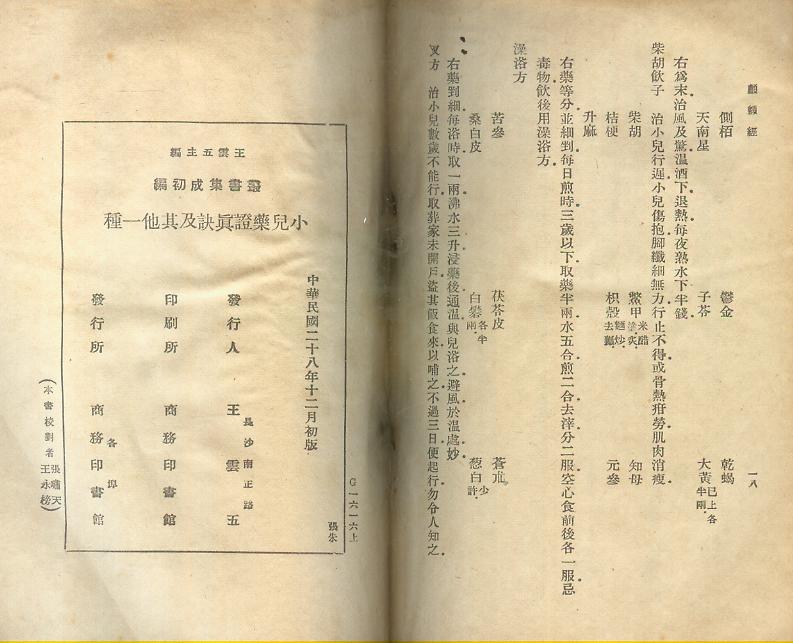 顱顖經
一八
側栢　鬱金　乾蝎
天南星　子芩　大黃已上各半兩
右爲末治風及驚温酒下退熱每夜熟水下半錢
柴胡飲子　治小兒行遲小兒傷抱脚纖細無力行止不得或骨熱疳勞肌肉消瘦
柴胡　鱉甲米醋塗炙　知母
桔梗　枳殼麵炒去瓤　元參
升麻
右藥等分並細剉每日煎時三歲以下取藥半兩水五合煎二合去滓分二服空心食前後各一服忌
毒物飲後用澡浴方
澡浴方
苦參　茯苓皮　蒼朮
桑白皮　白礬各半兩　葱白少許
右藥剉細每浴時取一兩沸水三升浸藥後通温與兒浴之避風於温處妙
又方　治小兒數歲不能行取葬家未開戶盜其飯食來以哺之不過三日便起行勿令人知之
G一六一六上
張朱
中華民國二十八年十二月初版
王雲五主編
叢書集成初編
小兒藥證眞訣及其他一種
發行人　王雲五
長沙南正路
印刷所　商務印書館
各埠
發行所　商務印書館
（本書校對者張嘯天王永榜）